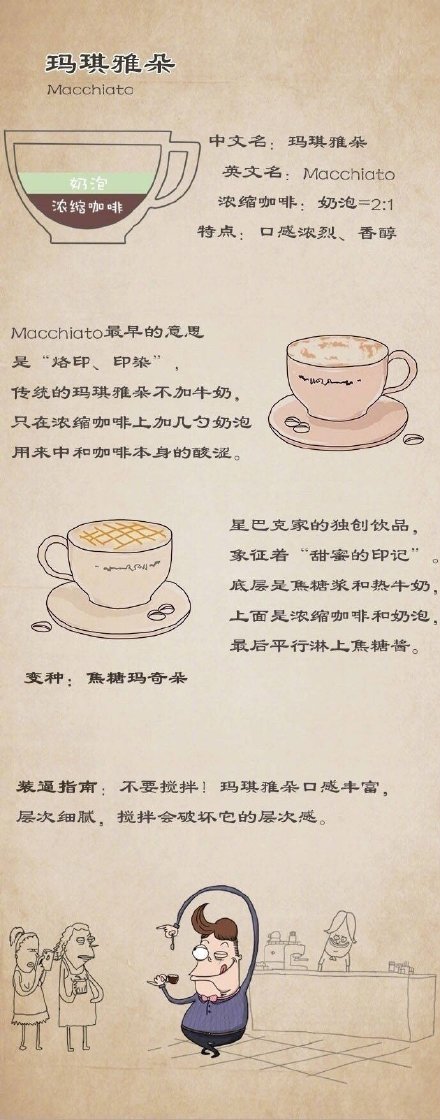 玛琪雅朵
Macchiato
奶泡
浓缩咖啡
中文名：玛琪雅朵
英文名：Macchiato
浓缩咖啡：奶泡=2:1
特点：口感浓烈、香醇
Macchiato最早的意思
是“烙印、印染”，
传统的玛琪雅朵不加牛奶，
只在浓缩咖啡上加几勺奶泡
用来中和咖啡本身的酸涩。
星巴克家的独创饮品，
象征着“甜蜜的印记”。
底层是焦糖浆和热牛奶，
上面是浓缩咖啡和奶泡，
最后平行淋上焦糖酱。
变种：焦糖玛奇朵
装逼指南：不要搅拌！玛琪雅朵口感丰富，
层次细腻，搅拌会破坏它的层次感。